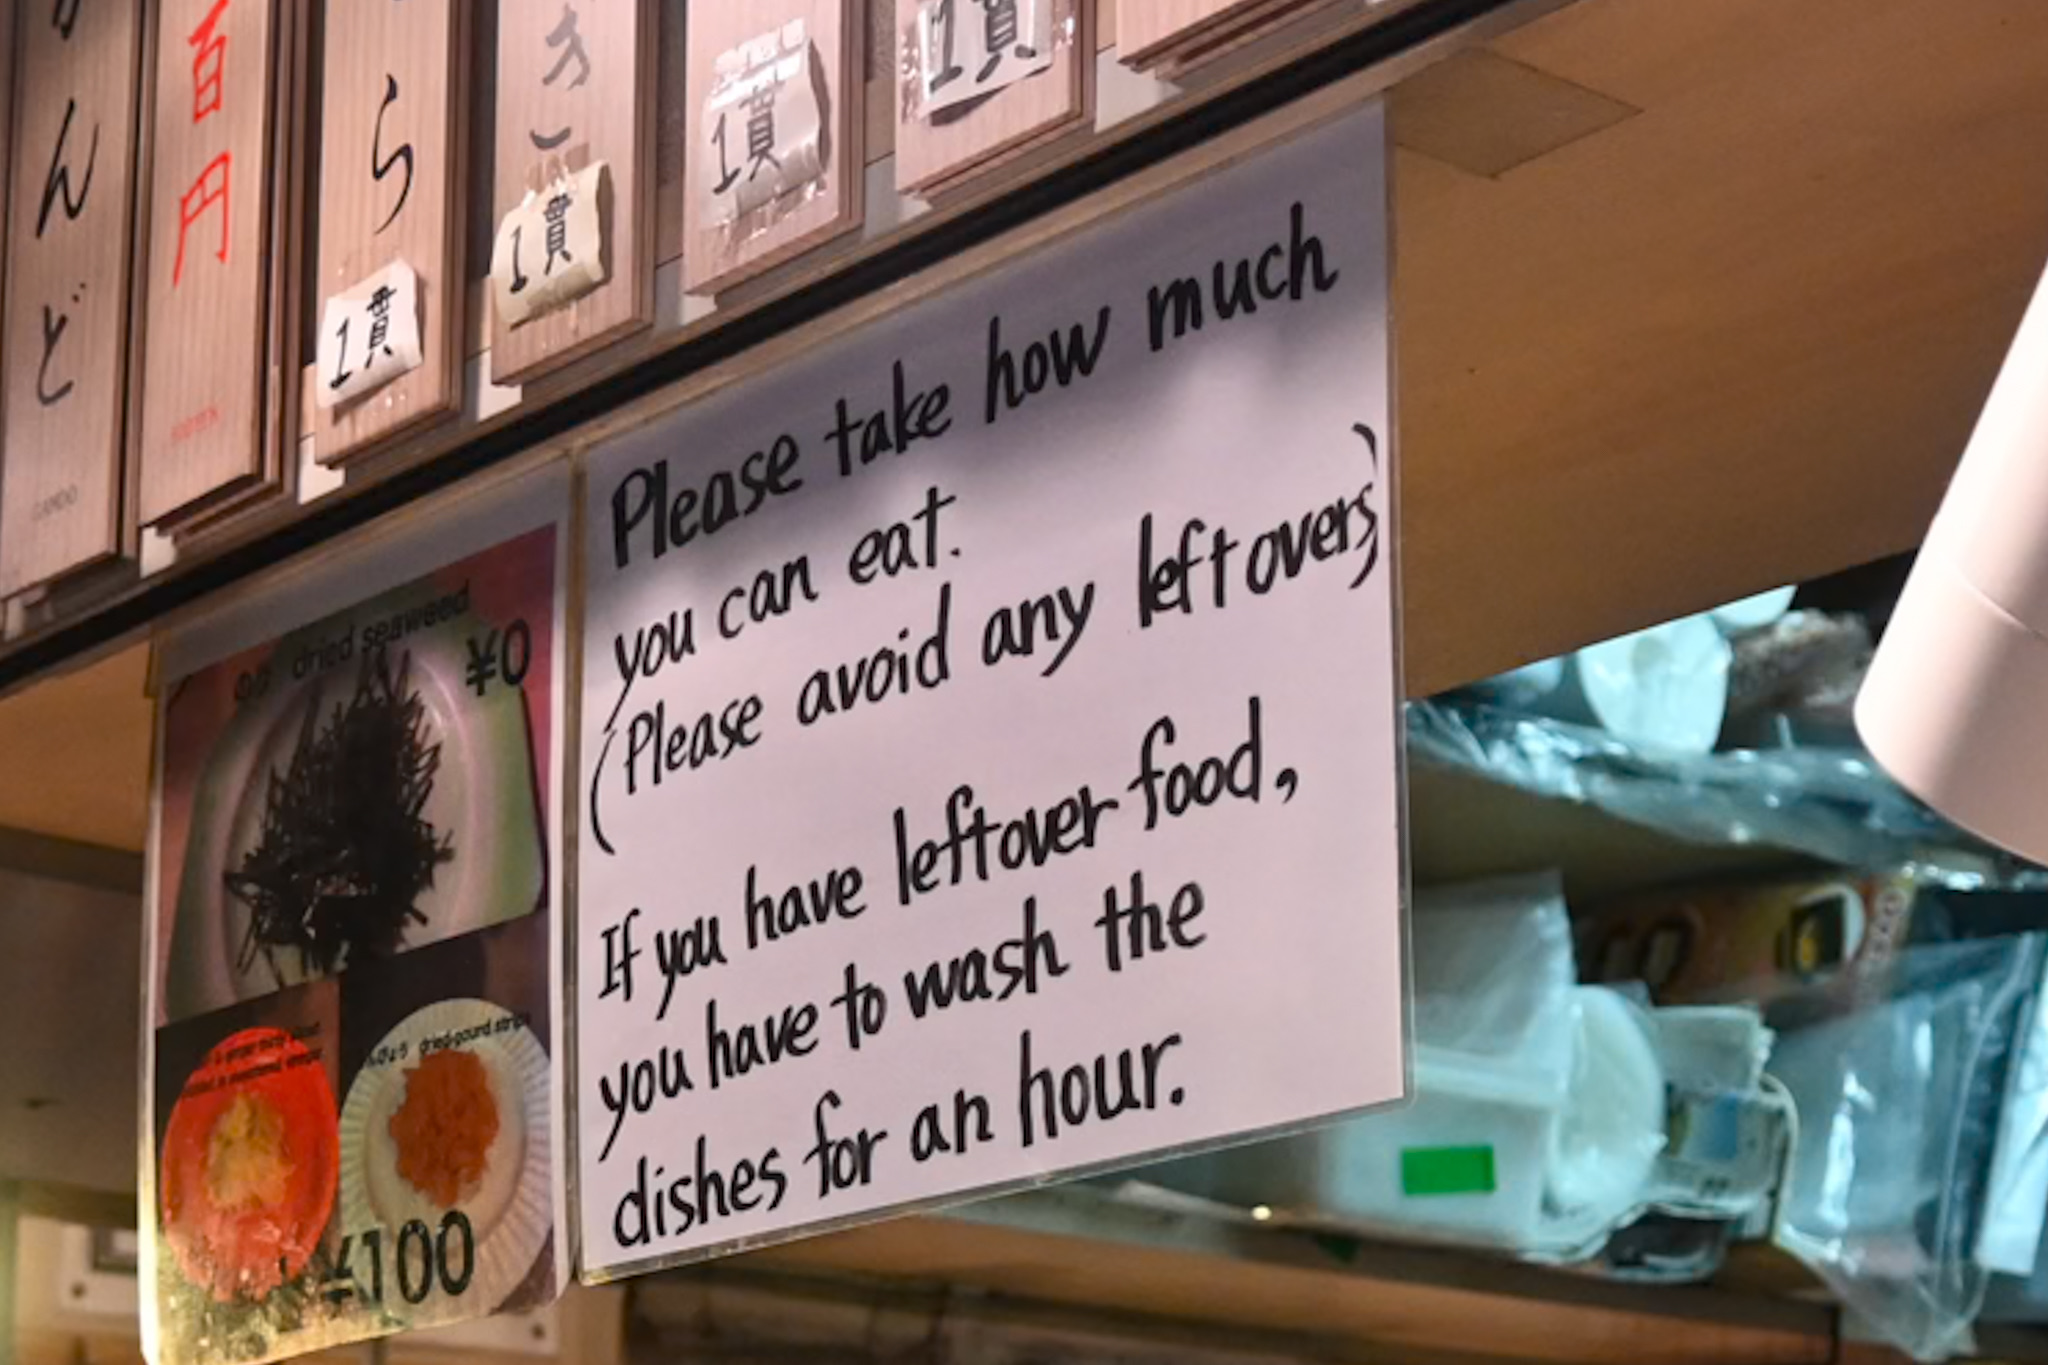 んど
百円
ら
1貫
き
1貫
1貫
1貫
Please take how much
you can eat.
(Please avoid any leftovers)
If you have leftover food,
you have to wash the
dishes for an hour.
dried seaweed
¥0
dried gourd strips
¥100